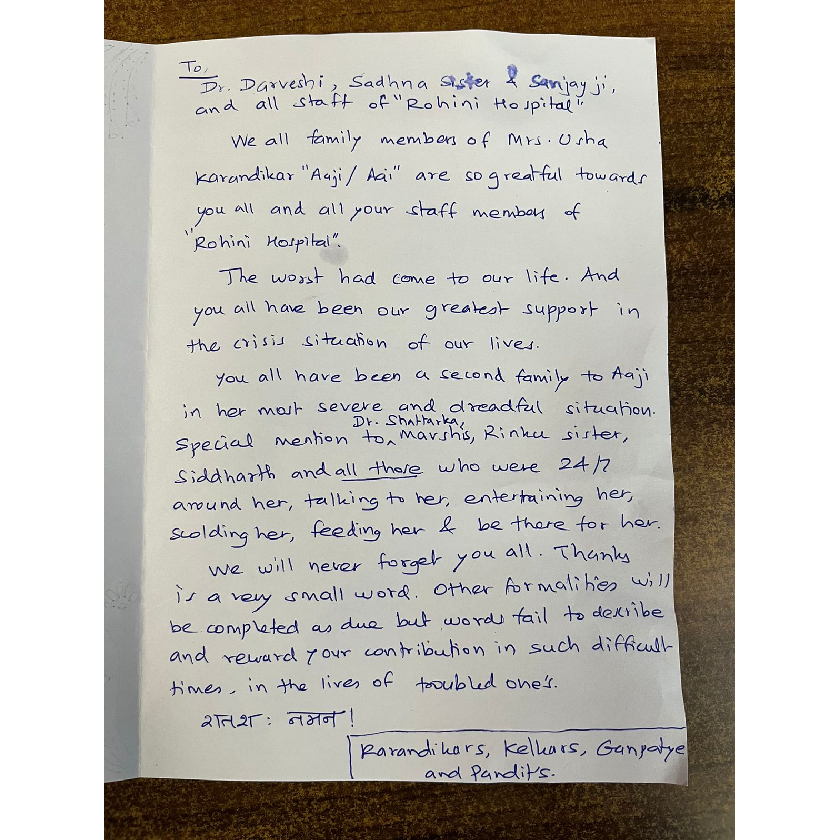 To,
Dr. Darveshi, Sadhna Sister & Sanjay ji,
and all staff of "Rohini Hospital"
We all family members of Mrs. Usha
Karandikar "Aaji/Aai" are so greatful towards
you all and all your staff members of
"Rohini Hospital".
The worst had come to our life. And
you all have been our greatest support in
the crisis situation of our lives.
You all have been a second family to Aaji
in her most severe and dreadful situation.
Dr. Shattarka,
Special mention to, Marshis, Rinku sister,
Siddharth and all those who were 24/7
around her, talking to her, entertaining her,
scolding her, feeding her & be there for her.
We will never forget you all. Thanks
is a very small word. Other formalities will
be completed as due but words fail to describe
and reward your contribution in such difficult
times, in the lives of troubled one's.
शतश: नमन!
Karandikars, Kelkars, Ganpatye
and Pandit's.